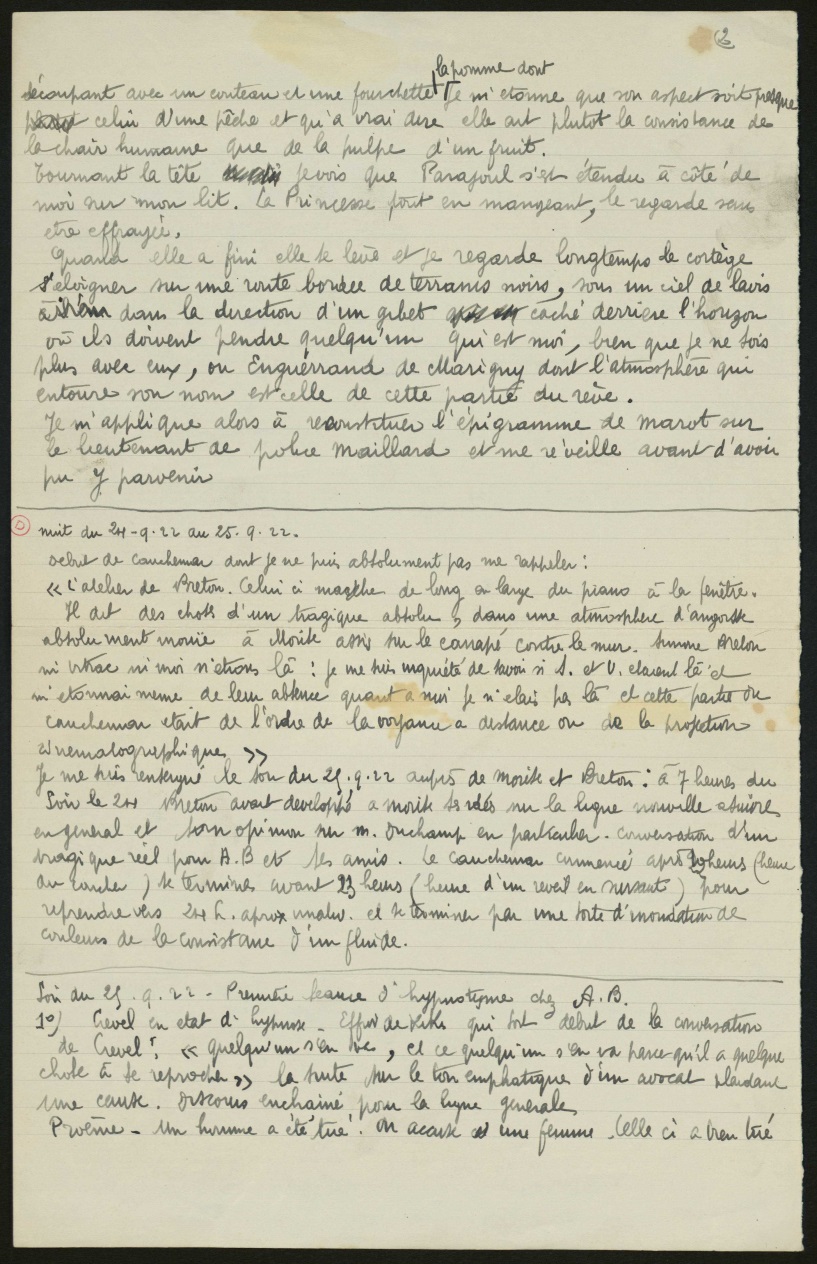 2
la pomme dont
découpant avec un couteau et une fourchette je m'étonne que son aspect soit presque
celui d'une pêche et qu'à vrai dire elle ait plutot la consistance de
la chair humaine que de la pulpe d'un fruit.
Tournant la tête je vois que Parajoul s'est étendu à côté de
moi sur mon lit. La Princesse tout en mangeant, le regarde sans
etre effrayée.
Quand elle a fini elle se leve et je regarde longtemps le cortège
s'eloigner sur une route bordée de terrains noirs, sous un ciel de lavis
dans la direction d'un gibet caché derriere l'horizon
où ils doivent pendre quelqu'un qui est moi, bien que je ne sois
plus avec eux, ou Enguerrand de Marigny dont l'atmosphère qui
entoure son nom est celle de cette partie du rêve.
Je m'applique alors à reconstituer l'épigramme de Marot sur
le lieutenant de police Maillard et me réveille avant d'avoir
pu y parvenir
D nuit du 24-9-22 au 25.9.22.
Debut de cauchemar dont je ne puis absolument pas me rappeler :
« L'atelier de Breton. Celui ci marche de long en large du piano à la fenêtre.
Il dit des choses d'un tragique absolu, dans une atmosphere d'angoisse
absolument inouïe à Morise assis sur le canapé contre le mur. Simone Breton
ni Vitrac ni moi n'étions là : je me suis inquiété de savoir si S. et V. étaient là et
m'etonnai meme de leur absence quant a moi je n'etais pas là et cette partie du
cauchemar etait de l'ordre de la voyance a distance ou de la projection
cinematographique »
Je me suis renseigné le soir du 25.9.22 auprès de Morise et Breton : à 7 heures du
soir le 24 Breton avait developpé a Morise ses idés sur la ligne nouvelle a suivre
en general et son opinion sur M. Duchamp en particulier. Conversation d'un
tragique réel pour A.B et ses amis. Le cauchemar commencé après heures (heure
du coucher) se termine avant 23 heures (heure d'un reveil en sursaut) pour
reprendre vers 24 h. et se terminer par une sorte d'inondation de
couleurs de la consistance d'un fluide.
Soir du 25.9.22 - Première seance d'hypnotisme chez A.B.
1°) Crevel en etat d'hypnose - Effroi de Kiki qui sort debut de la conversation
de Crevel : « quelqu'un s'en va, et ce quelqu'un s'en va parce qu'il a quelque
chose à se reprocher » la suite sur le ton emphatique d'un avocat plaidant
une cause. Discours enchainé pour la ligne generale
Proême - Un homme a été tué. On accuse une femme. Celle ci a bien tué